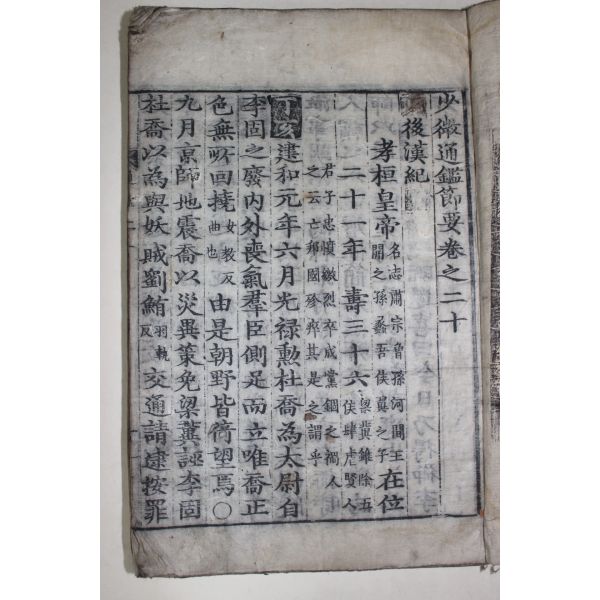 少微通鑑節要卷之二十
後漢紀
孝桓皇帝 名志肅宗曾孫河間王開之孫蠡吾侯翼之子 在位
二十一年壽三十六 梁冀雖除五侯肆虐賢人君子忠憤激烈卒成黨錮之禍人之云亡邦國殄瘁其是之謂乎
丁亥建和元年六月光禄勲杜喬為太尉自
李固之廢內外喪氣羣臣側足而立唯喬正
色無所回撓 女教反曲也 由是朝野皆倚望焉○
九月京師地震喬以災異策免梁冀誣李固
杜喬以為與妖賊劉鮪 羽軌反 交通請逮按罪